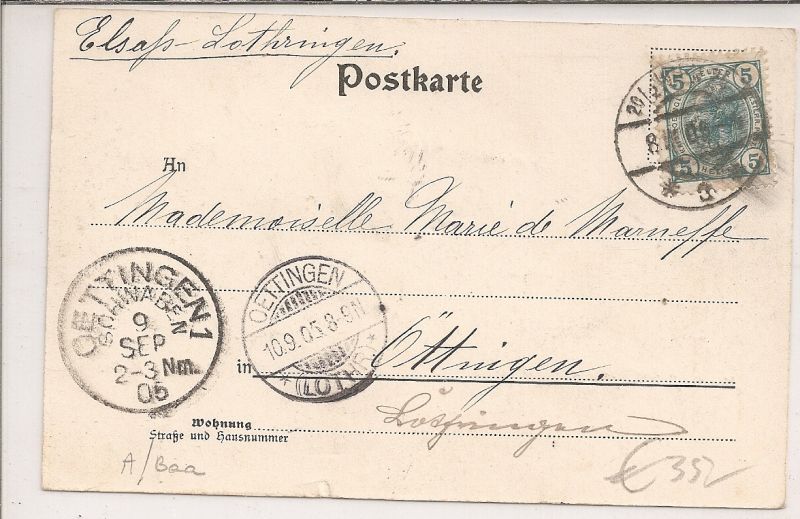 Elsaß-Lothringen.
Postkarte
5 5
5 5
20/
8
* 3
An
Mademoiselle Marie de Marneffe
OETTINGEN 1
SCHWABEN
9
SEP
2-3 Nm.
05
OETTINGEN
10.9.05.8-9N
* (LOTHR) *
in Öttingen.
Lothringen
Wohnung
Straße und Hausnummer
A/Baa
€ 35